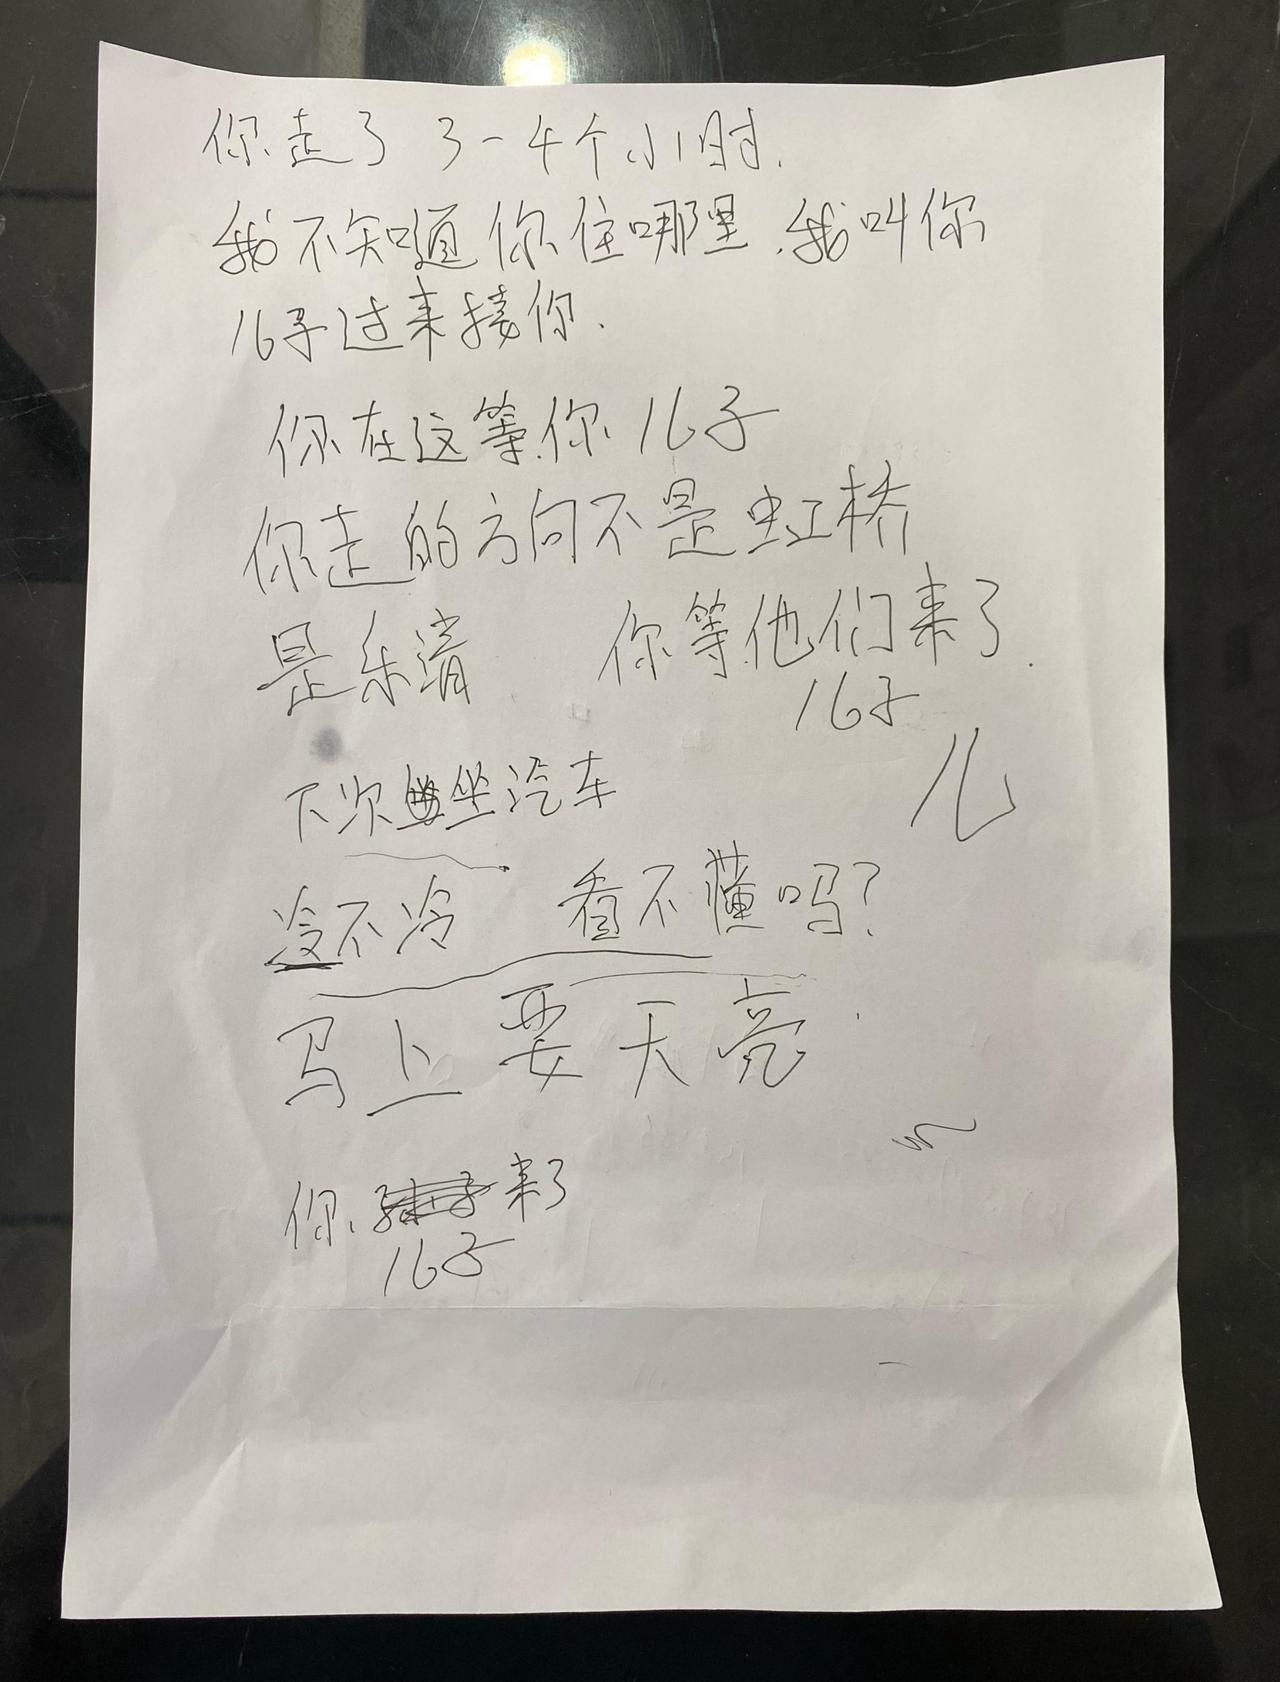 你走了 3-4个小时.
我不知道你住哪里.我叫你
儿子过来接你.
你在这等你儿子
你走的方向不是虹桥
是乐清 你等他们来了.
儿子
儿
下次坐汽车
冷不冷 看不懂吗?
马上要天亮
你 来了
儿子